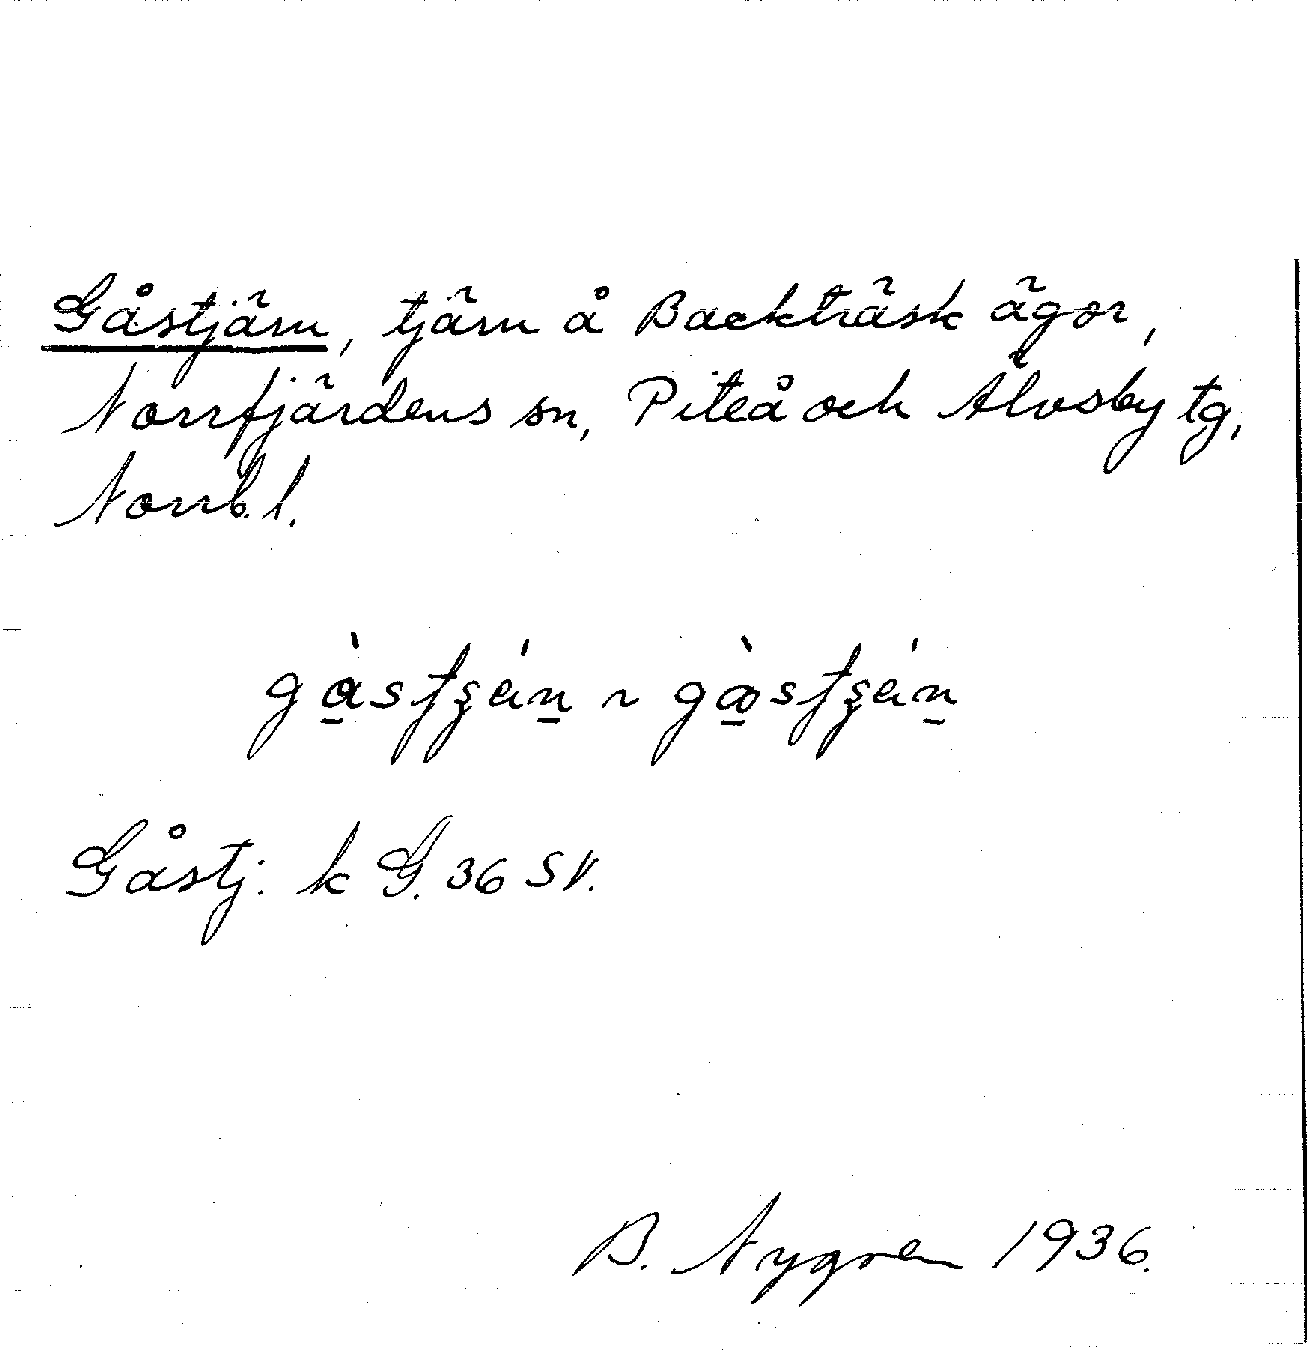 Gåstjärn, tjärn å Backträsk ägor,
Norrfjärdens sn, Piteå och Älvsby tg,
Norrb. l.
Gåstj. k G. 36 SV.
B. Nygren 1936.